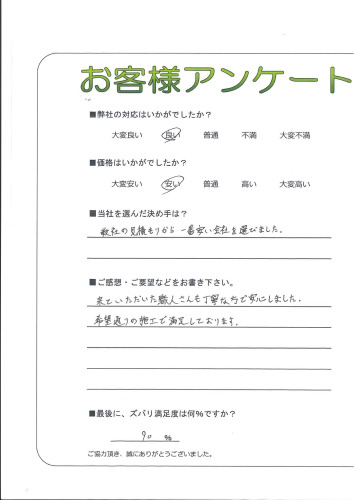 お客様アンケート
■弊社の対応はいかがでしたか?
大変良い 良い 普通 不満 大変不満
■価格はいかがでしたか?
大変安い 安い 普通 高い 大変高い
■当社を選んだ決め手は?
数社の見積もりから一番安い会社を選びました。
■ご感想・ご要望などをお書き下さい。
来ていただいた職人さんも丁寧な方で安心しました。
希望通りの施工で満足しております。
■最後に、ズバリ満足度は何%ですか?
90 %
ご協力頂き、誠にありがとうございました。